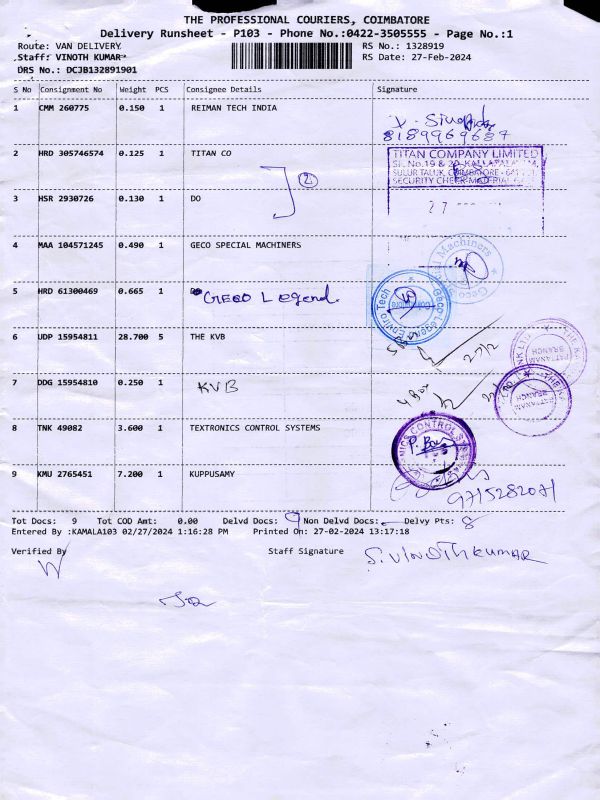 THE PROFESSIONAL COURIERS, COIMBATORE
Delivery Runsheet - P103 - Phone No.:0422-3505555 - Page No.:1
Route: VAN DELIVERY RS No.: 1328919
Staff: VINOTH KUMAR RS Date: 27-Feb-2024
DRS No.: DCJB132891901
S No Consignment No Weight PCS Consignee Details Signature
1 CMM 260775 0.150 1 REIMAN TECH INDIA
8189969637
2 HRD 305746574 0.125 1 TITAN CO
TITAN COMPANY LIMITED
SULUR TALUK, COIMBATORE
SECURITY CHECK
2
3 HSR 2930726 0.130 1 DO
27
4 MAA 104571245 0.490 1 GECO SPECIAL MACHINERS
Geco Special Machiners
5 HRD 61300469 0.665 1 GECO Legend.
Geco Legend Enviro Tech
Coimbatore
6 UDP 15954811 28.700 5 THE KVB
27/2
PATTANAM
BRANCH
7 DDG 15954810 0.250 1 KVB
4 Box
PATTANAM
BRANCH
8 TNK 49082 3.600 1 TEXTRONICS CONTROL SYSTEMS
9 KMU 2765451 7.200 1 KUPPUSAMY
9715282071
Tot Docs: 9 Tot COD Amt: 0.00 Delvd Docs: 9 Non Delvd Docs: - Delvy Pts: 8
Entered By :KAMALA103 02/27/2024 1:16:28 PM Printed On: 27-02-2024 13:17:18
Verified By Staff Signature S.VINOTHKUMAR